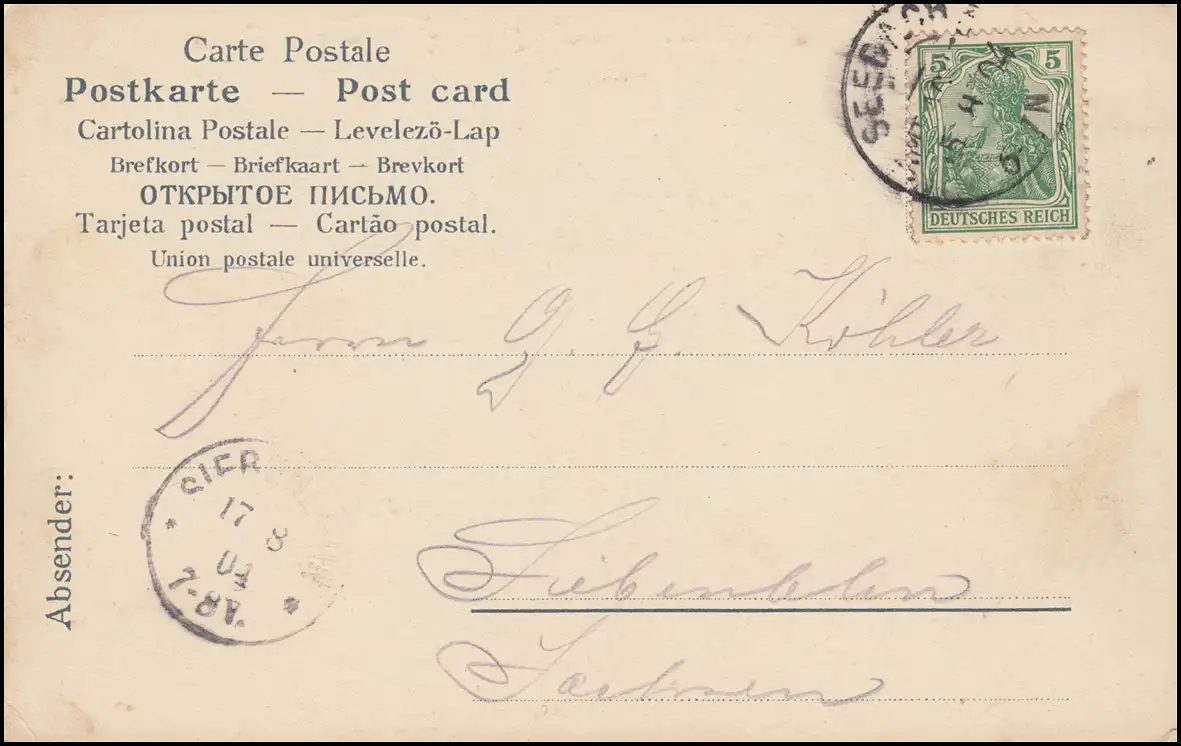 Carte Postale
Postkarte — Post card
Cartolina Postale — Levelezö-Lap
Brefkort — Briefkaart — Brevkort
ОТКРЫТОЕ ПИСЬМО.
Tarjeta postal — Cartão postal.
Union postale universelle.
SEEBACH
5 5
DEUTSCHES REICH
Herrn G. G. Köhler
Absender:
17 8
04
7-8V.
Siebenlehn
Sachsen